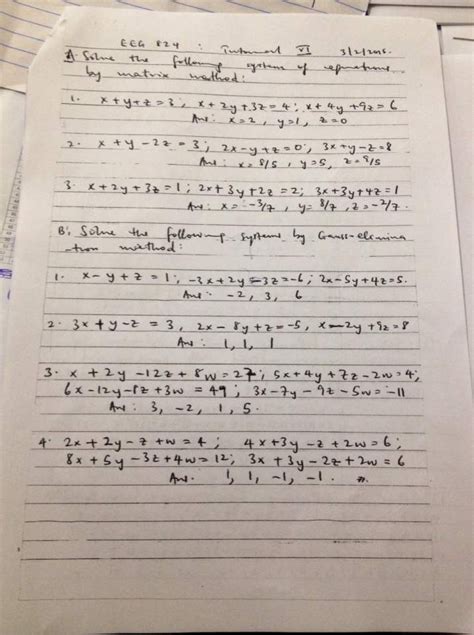 EEG 824 : Tutorial VI 3/2/2015.
A. Solve the following system of equations
by matrix method:
1. x+y+z=3; x+2y+3z=4; x+4y+9z=6
Ans: x=2, y=1, z=0
2. x+y-2z=3; 2x-y+z=0; 3x+y-z=8
Ans: x=8/5, y=5, z=9/5
3. x+2y+3z=1; 2x+3y+2z=2; 3x+3y+4z=1
Ans: x=-3/7, y=8/7, z=-2/7.
B: Solve the following systems by Gauss-elimina
tion method:
1. x-y+z=1; -3x+2y-3z=-6; 2x-5y+4z=5.
Ans: -2, 3, 6
2. 3x+y-z=3, 2x-8y+z=-5, x-2y+9z=8
Ans: 1, 1, 1
3. x+2y-12z+8w=27; 5x+4y+7z-2w=4;
6x-12y-8z+3w=49; 3x-7y-9z-5w=-11
Ans: 3, -2, 1, 5.
4. 2x+2y-z+w=4; 4x+3y-z+2w=6;
8x+5y-3z+4w=12; 3x+3y-2z+2w=6
Ans: 1, 1, -1, -1.